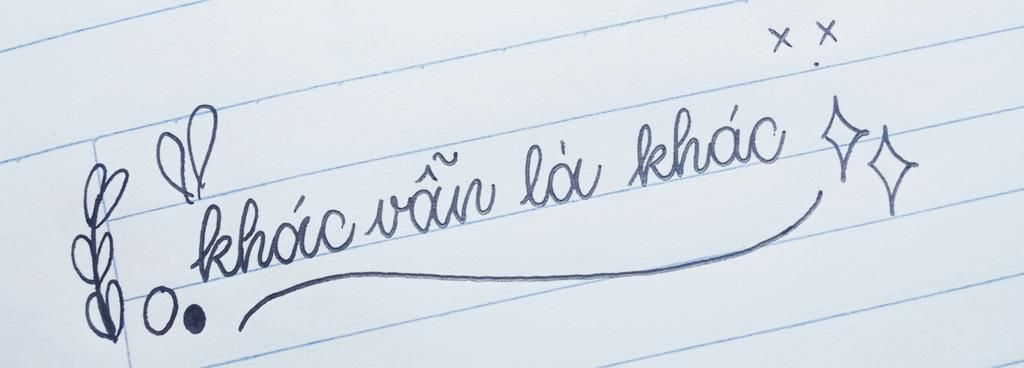 khác vẫn là khác